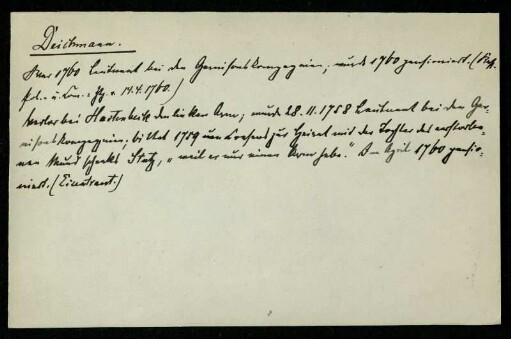 Deichmann.
War 1760 Leutnant bei den Garnisonskompagnien; wurde 1760 pensioniert. (Kass.
Pol.- u. Com.- Ztg. v. 14.4.1760.)
Verlor bei Hastenbeck den linken Arm; wurde 28.11.1758 Leutnant bei den Gar-
nisonskompagnien; bittet 1759 um Consens zur Heirat mit der Tochter des verstorbe-
nen Mundschenks Stutz, „weil er nur einen Arm habe." Im April 1760 pensio-
niert. (Eisentraut.)